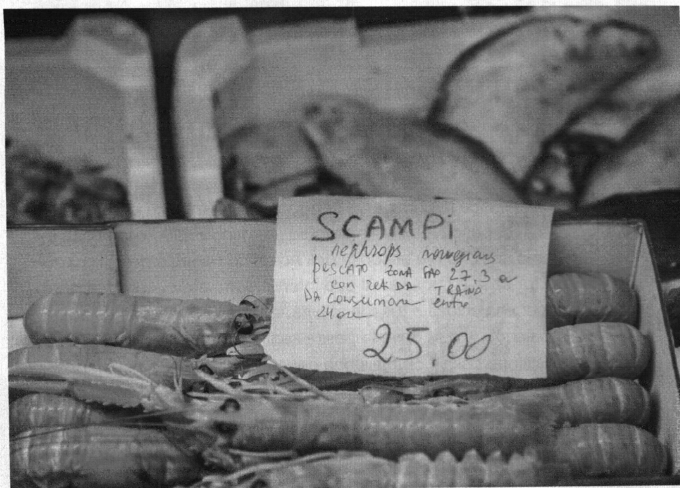 SCAMPi
nephrops norvegicus
PESCATO ZONA FAO 27.3 a
con reti DA TRAINO
DA consumare entro
24 ore
25.00